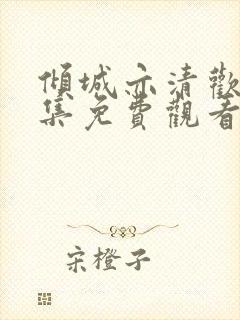 傾城亦清歡
集免費觀看
宋橙子